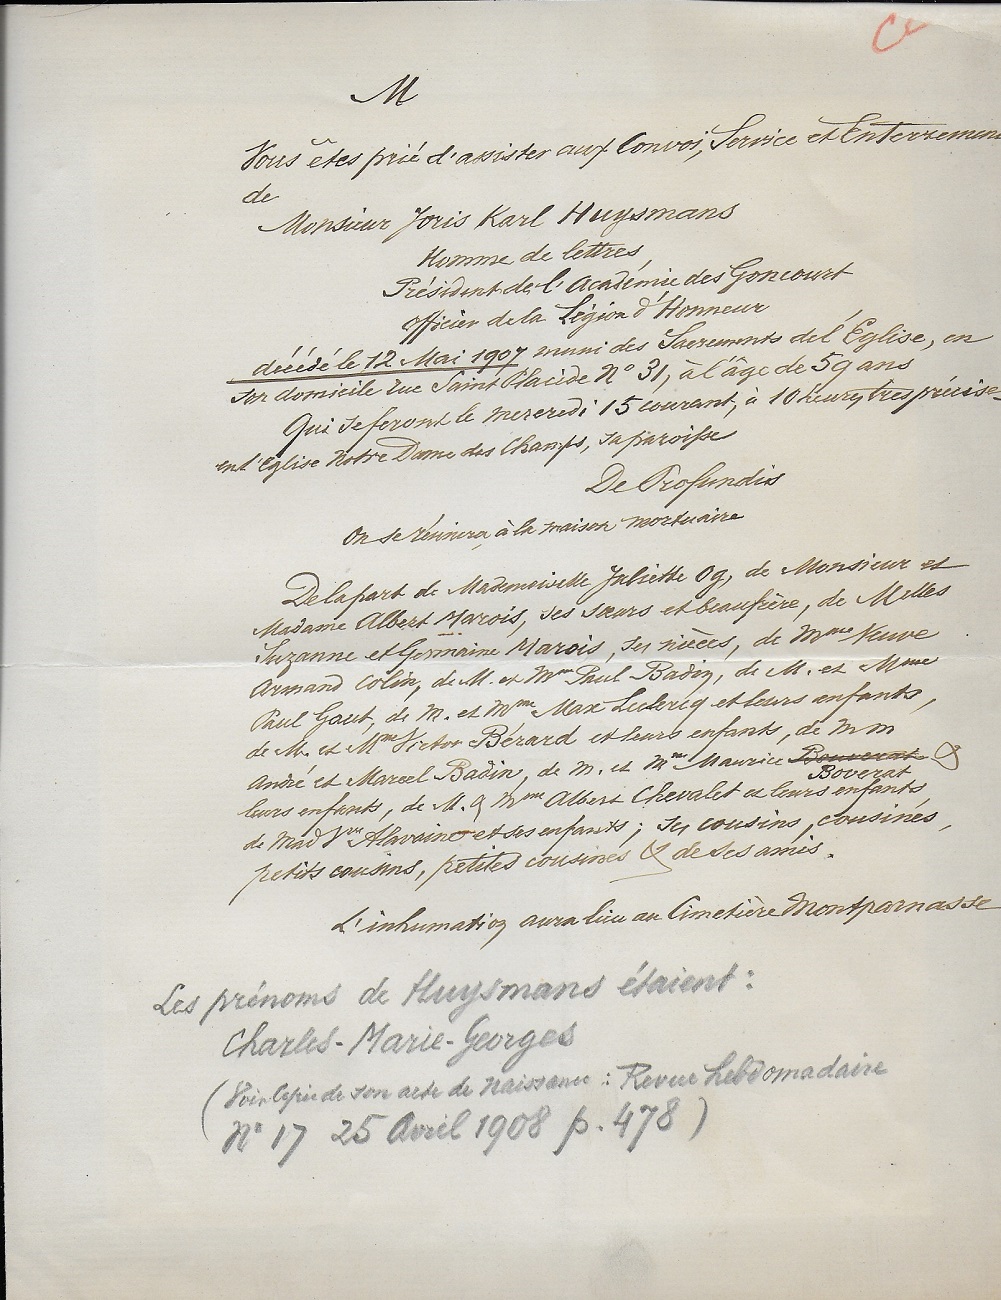 M
Vous êtes prié d'assister aux Convoi, Service et Enterrement
de
Monsieur Joris Karl Huysmans
Homme de lettres
Président de l'Académie des Goncourt
Officier de la Légion d'Honneur
décédé le 12 Mai 1907 muni des Sacrements de l'Église, en
son domicile rue Saint Placide N° 31, à l'âge de 59 ans
Qui se feront le mercredi 15 courant, à 10 heures très précises
en l'Eglise Notre Dame des Champs, sa paroisse
De Profundis
On se réunira à la maison mortuaire
De la part de Mademoiselle Juliette Og, de Monsieur et
Madame Albert Marois, ses sœurs et beaufrère, de Melles
Suzanne et Germaine Marois, ses nièces, de Mme Veuve
Armand Colin, de M. et Mme Paul Badin, de M. et Mme
Paul Gaut, de M. et Mme Max Leclercq et leurs enfants,
de M. et Mme Victor Bérard et leurs enfants, de MM
André et Marcel Badin, de M. et Mme Maurice Bouverat &
Boverat
leurs enfants, de M. & Mme Albert Chevalet et leurs enfants,
de Mad Vve Alavaine et ses enfants; ses cousins, cousines,
petits cousins, petites cousines & de ses amis.
L'inhumation aura lieu au Cimetière Montparnasse
Les prénoms de Huysmans étaient :
Charles-Marie-Georges
(Voir copie de son acte de naissance : Revue hebdomadaire
N° 17 25 Avril 1908 p. 478)